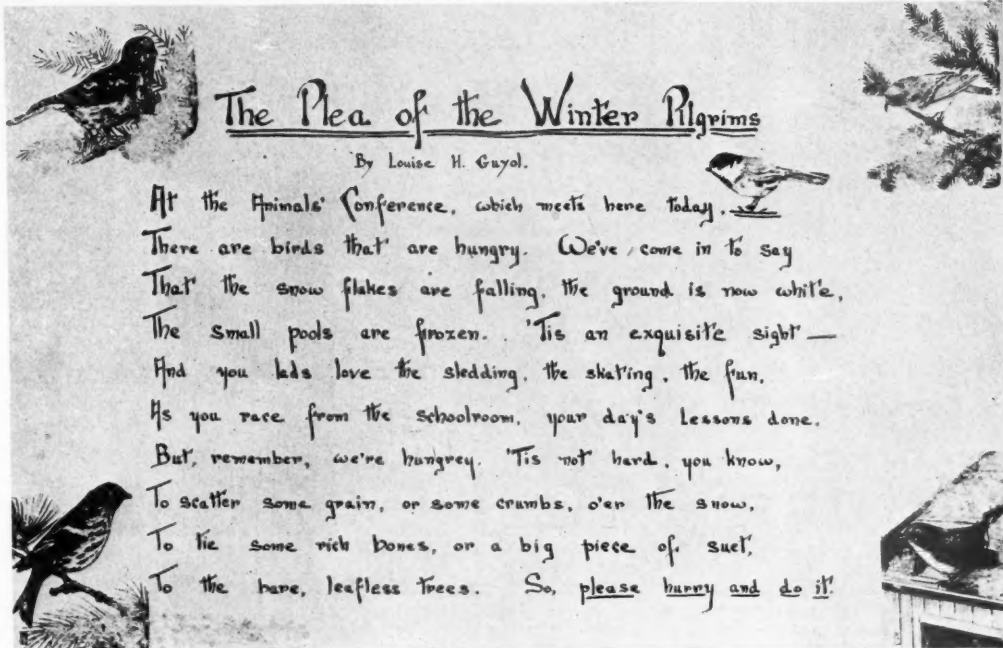 The Plea of the Winter Pilgrims
By Louise H. Guyol.
At the Animals' Conference, which meets here today,
There are birds that are hungry. We've come in to say
That the snow flakes are falling, the ground is now white,
The small pools are frozen. 'Tis an exquisite sight —
And you lads love the sledding, the skating, the fun,
As you race from the schoolroom, your day's lessons done.
But, remember, we're hungrey. 'Tis not hard, you know,
To scatter some grain, or some crumbs, o'er the snow,
To tie some rich bones, or a big piece of suet,
To the bare, leafless trees. So, please hurry and do it!